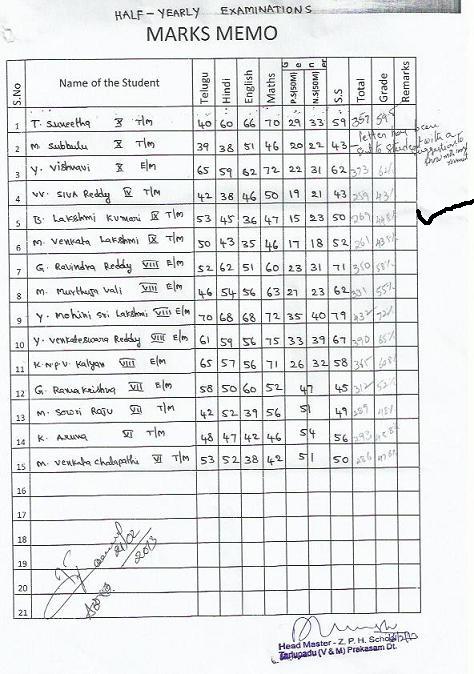 HALF-YEARLY EXAMINATIONS
MARKS MEMO
S.No Name of the Student Telugu Hindi English Maths Gener P.S(50M) N.S(50M) S.S Total Grade Remarks
1 T. Suneetha X T/M 40 60 66 70 29 33 59 357
2 M Subbulu X T/M 39 38 51 46 20 22 43
letter has been
sent to student with a
3 Y. Vishnavi X E/M 65 59 62 72 22 31 62 373
4 VV. Siva Reddy IX T/M 42 38 46 50 19 21 43 259 43%
5 B. Lakshmi Kumari IX T/M 53 45 36 47 15 23 50 269
6 M. Venkata Lakshmi IX T/M 50 43 35 46 17 18 52 261
7 G. Ravindra Reddy VIII E/M 52 62 51 60 23 31 71 350 58%
8 M. Murthuja Vali VIII E/M 46 54 56 63 27 23 62 331 55%
9 Y. Mohini Sri Lakshmi VIII E/M 70 68 68 72 35 40 79 432 72%
10 Y. Venkateswara Reddy VIII E/M 61 59 56 75 33 39 67 390 65%
11 K.N.P.V. Kalyan VIII E/M 65 57 56 71 26 32 58 365
12 G. Ramakrishna VII E/M 58 50 60 52 47 45 312 52%
13 M. Sowri Raju VII T/M 42 52 39 56 51 49 289 48%
14 K. Aruna VI T/M 48 47 42 46 54 56 293
15 M. Venkata Chalapathi VI T/M 53 52 38 42 51 50 286
16
17
18
19
20
21
21/02
2013
Head Master - Z. P. H. School
Tarlupadu (V & M) Prakasam Dt.